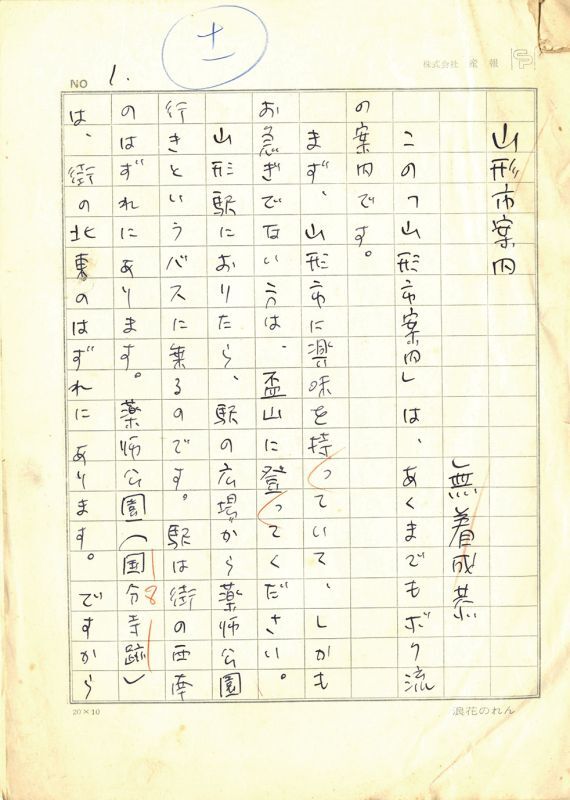 十一
株式会社 産報
NO 1.
山形市案内
無着成恭
この「山形市案内」は、あくまでもボク流
の案内です。
まず、山形市に興味を持っていて、しかも
お急ぎでない方は、盃山に登ってください。
山形駅におりたら、駅の広場から薬師公園
行きというバスに乗るのです。駅は街の西南
のはずれにあります。薬師公園(国分寺跡)
8
は、街の北東のはずれにあります。ですから
20×10
浪花のれん